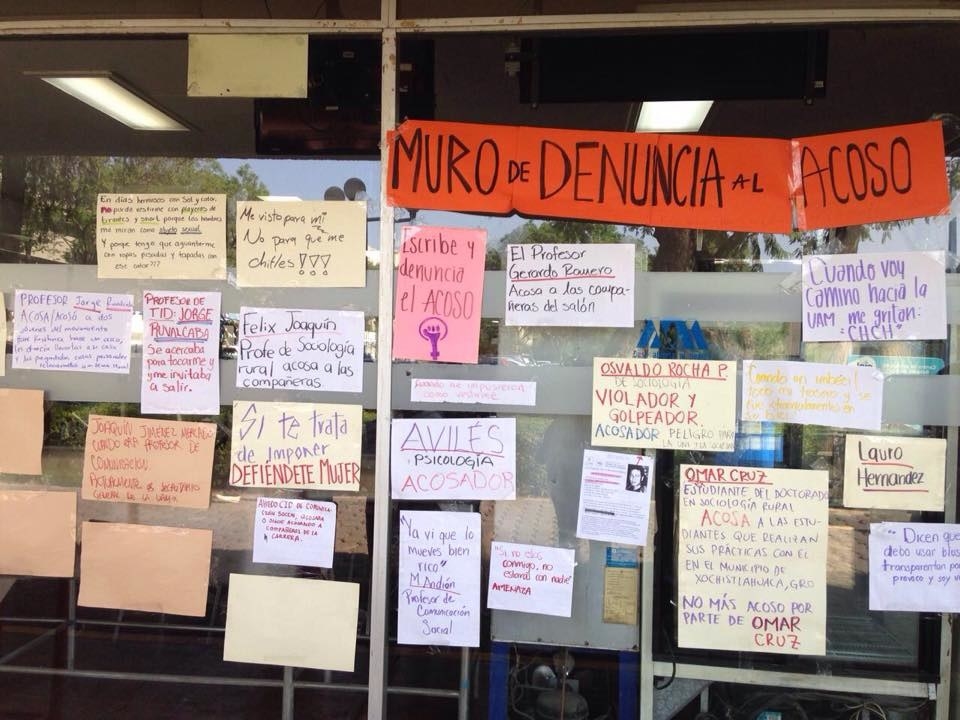 MURO DE DENUNCIA AL ACOSO
En días hermosos con Sol y calor
no puedo vestirme con playeras de
tirantes y short porque los hombres
me miran como objeto sexual
Y porque tengo que aguantarme
con ropas pesadas y tapadas con
ese calor???
Me visto para mi
No para que me
chifles!!!
Escribe y
denuncia
el ACOSO
El Profesor
Gerardo Romero
Acosa a las compa-
ñeras del salón
Cuando voy
camino hacia la
UAM me gritan:
"CHCH"
PROFESOR Jorge
ACOSA/ACOSÓ A dos
jóvenes del movimiento
PROFESOR DE
TID: JORGE
RUVALCABA
Se acercaba
para tocarme y
me invitaba
a salir.
Felix Joaquín
Profe de Sociología
rural acosa a las
compañeras.
como vestirme
OSVALDO ROCHA P.
DE SOCIOLOGÍA
VIOLADOR Y
GOLPEADOR.
ACOSADOR PELIGRO PARA
LA UAM Y LA SOCIEDAD
JOAQUÍN JIMÉNEZ MERCADO
PROFESOR DE
COMUNICACIÓN
ACTUALMENTE ES SECRETARIO
GENERAL DE LA
Si te trata
de imponer
DEFIÉNDETE MUJER
AVILÉS
PSICOLOGÍA
ACOSADOR
Lauro
Hernández
OMAR CRUZ
ESTUDIANTE DEL DOCTORADO
EN SOCIOLOGÍA RURAL
ACOSA A LAS ESTU-
DIANTES QUE REALIZAN
SUS PRÁCTICAS CON ÉL
EN EL MUNICIPIO DE
XOCHISTLAHUACA, GRO
NO MÁS ACOSO POR
PARTE DE OMAR
CRUZ
CID DE COMUNICA-
CIÓN SOCIAL, ACOSABA
O SIGUE ACOSANDO A
COMPAÑERAS DE LA
CARRERA.
"Ya vi que lo
mueves bien
rico"
M. Andión
Profesor de
Comunicación
Social
"Si no estas
conmigo, no
estarás con nadie"
AMENAZA
"Dicen que
debo usar
transparentan
provoco y soy